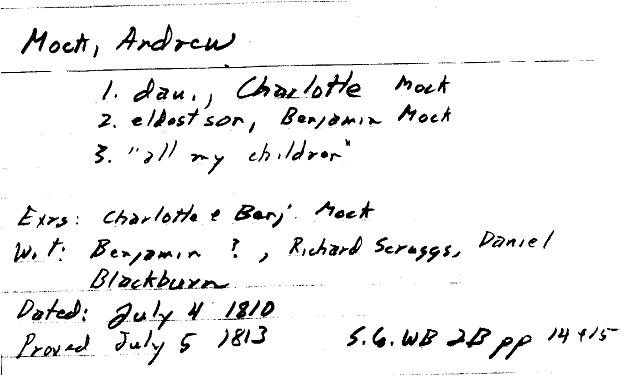 Mock, Andrew
1. dau., Charlotte Mock
2. eldest son, Benjamin Mock
3. "all my children"
Exrs: Charlotte & Benj. Mock
Wit: Benjamin ?, Richard Scruggs, Daniel
Blackburn
Dated: July 4 1810
Proved July 5 1813 S.G. WB 2B pp 14+15